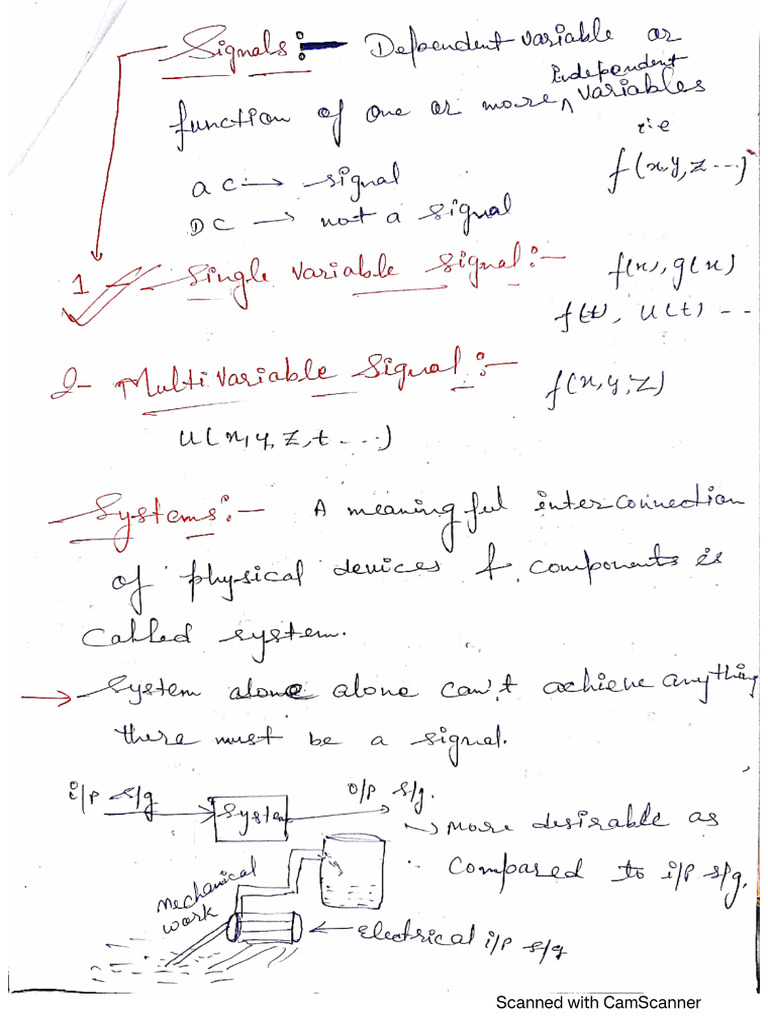 Signals:- Dependent variable or
function of one or more ^ independent variables
i.e
f(x,y,z...)
ac → signal
DC → not a signal
1 - Single variable signal:- f(x), g(x)
f(t), u(t) --
2- Multivariable signal:- f(x,y,z)
u(x,y,z,t....)
Systems:- A meaningful interconnection
of physical devices & components is
called system.
→ System alone alone can't achieve anything
there must be a signal.
i/p s/g → System → o/p s/g.
→ more desirable as
compared to i/p s/g.
mechanical
work
← electrical i/p s/g
Scanned with CamScanner